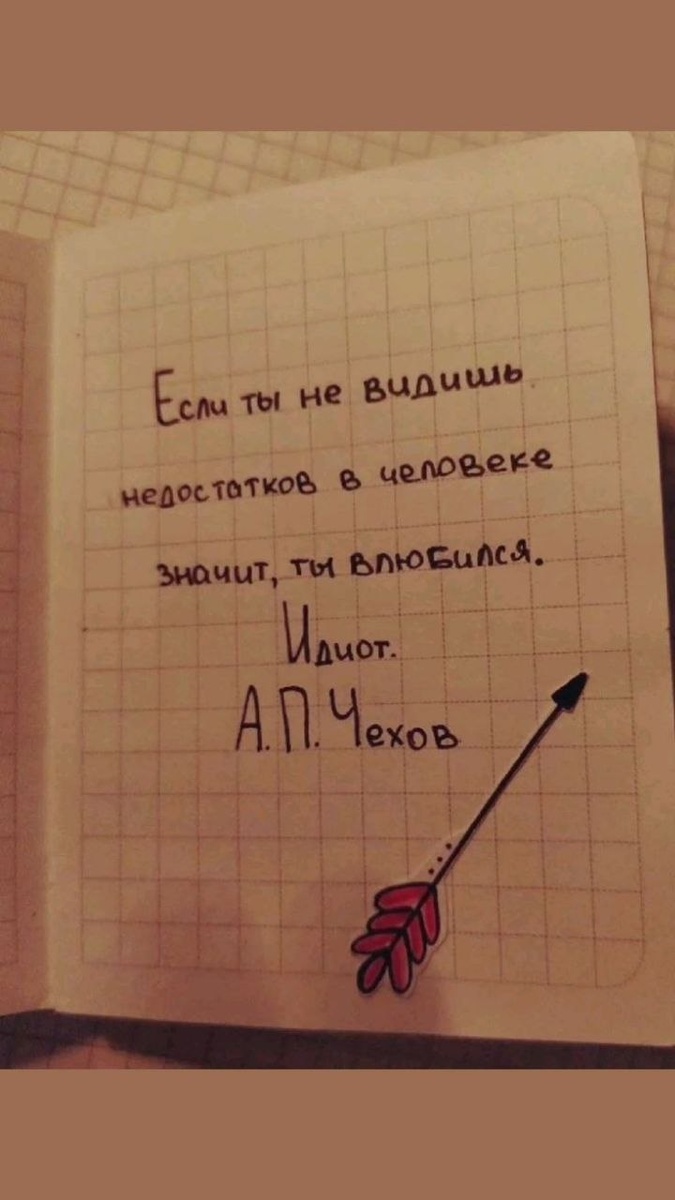 Если ты не видишь
недостатков в человеке
значит, ты влюбился.
Идиот.
А.П.Чехов